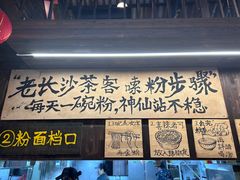 “老长沙茶客嗦粉步骤”
每天一碗粉,神仙站不稳
②粉面档口